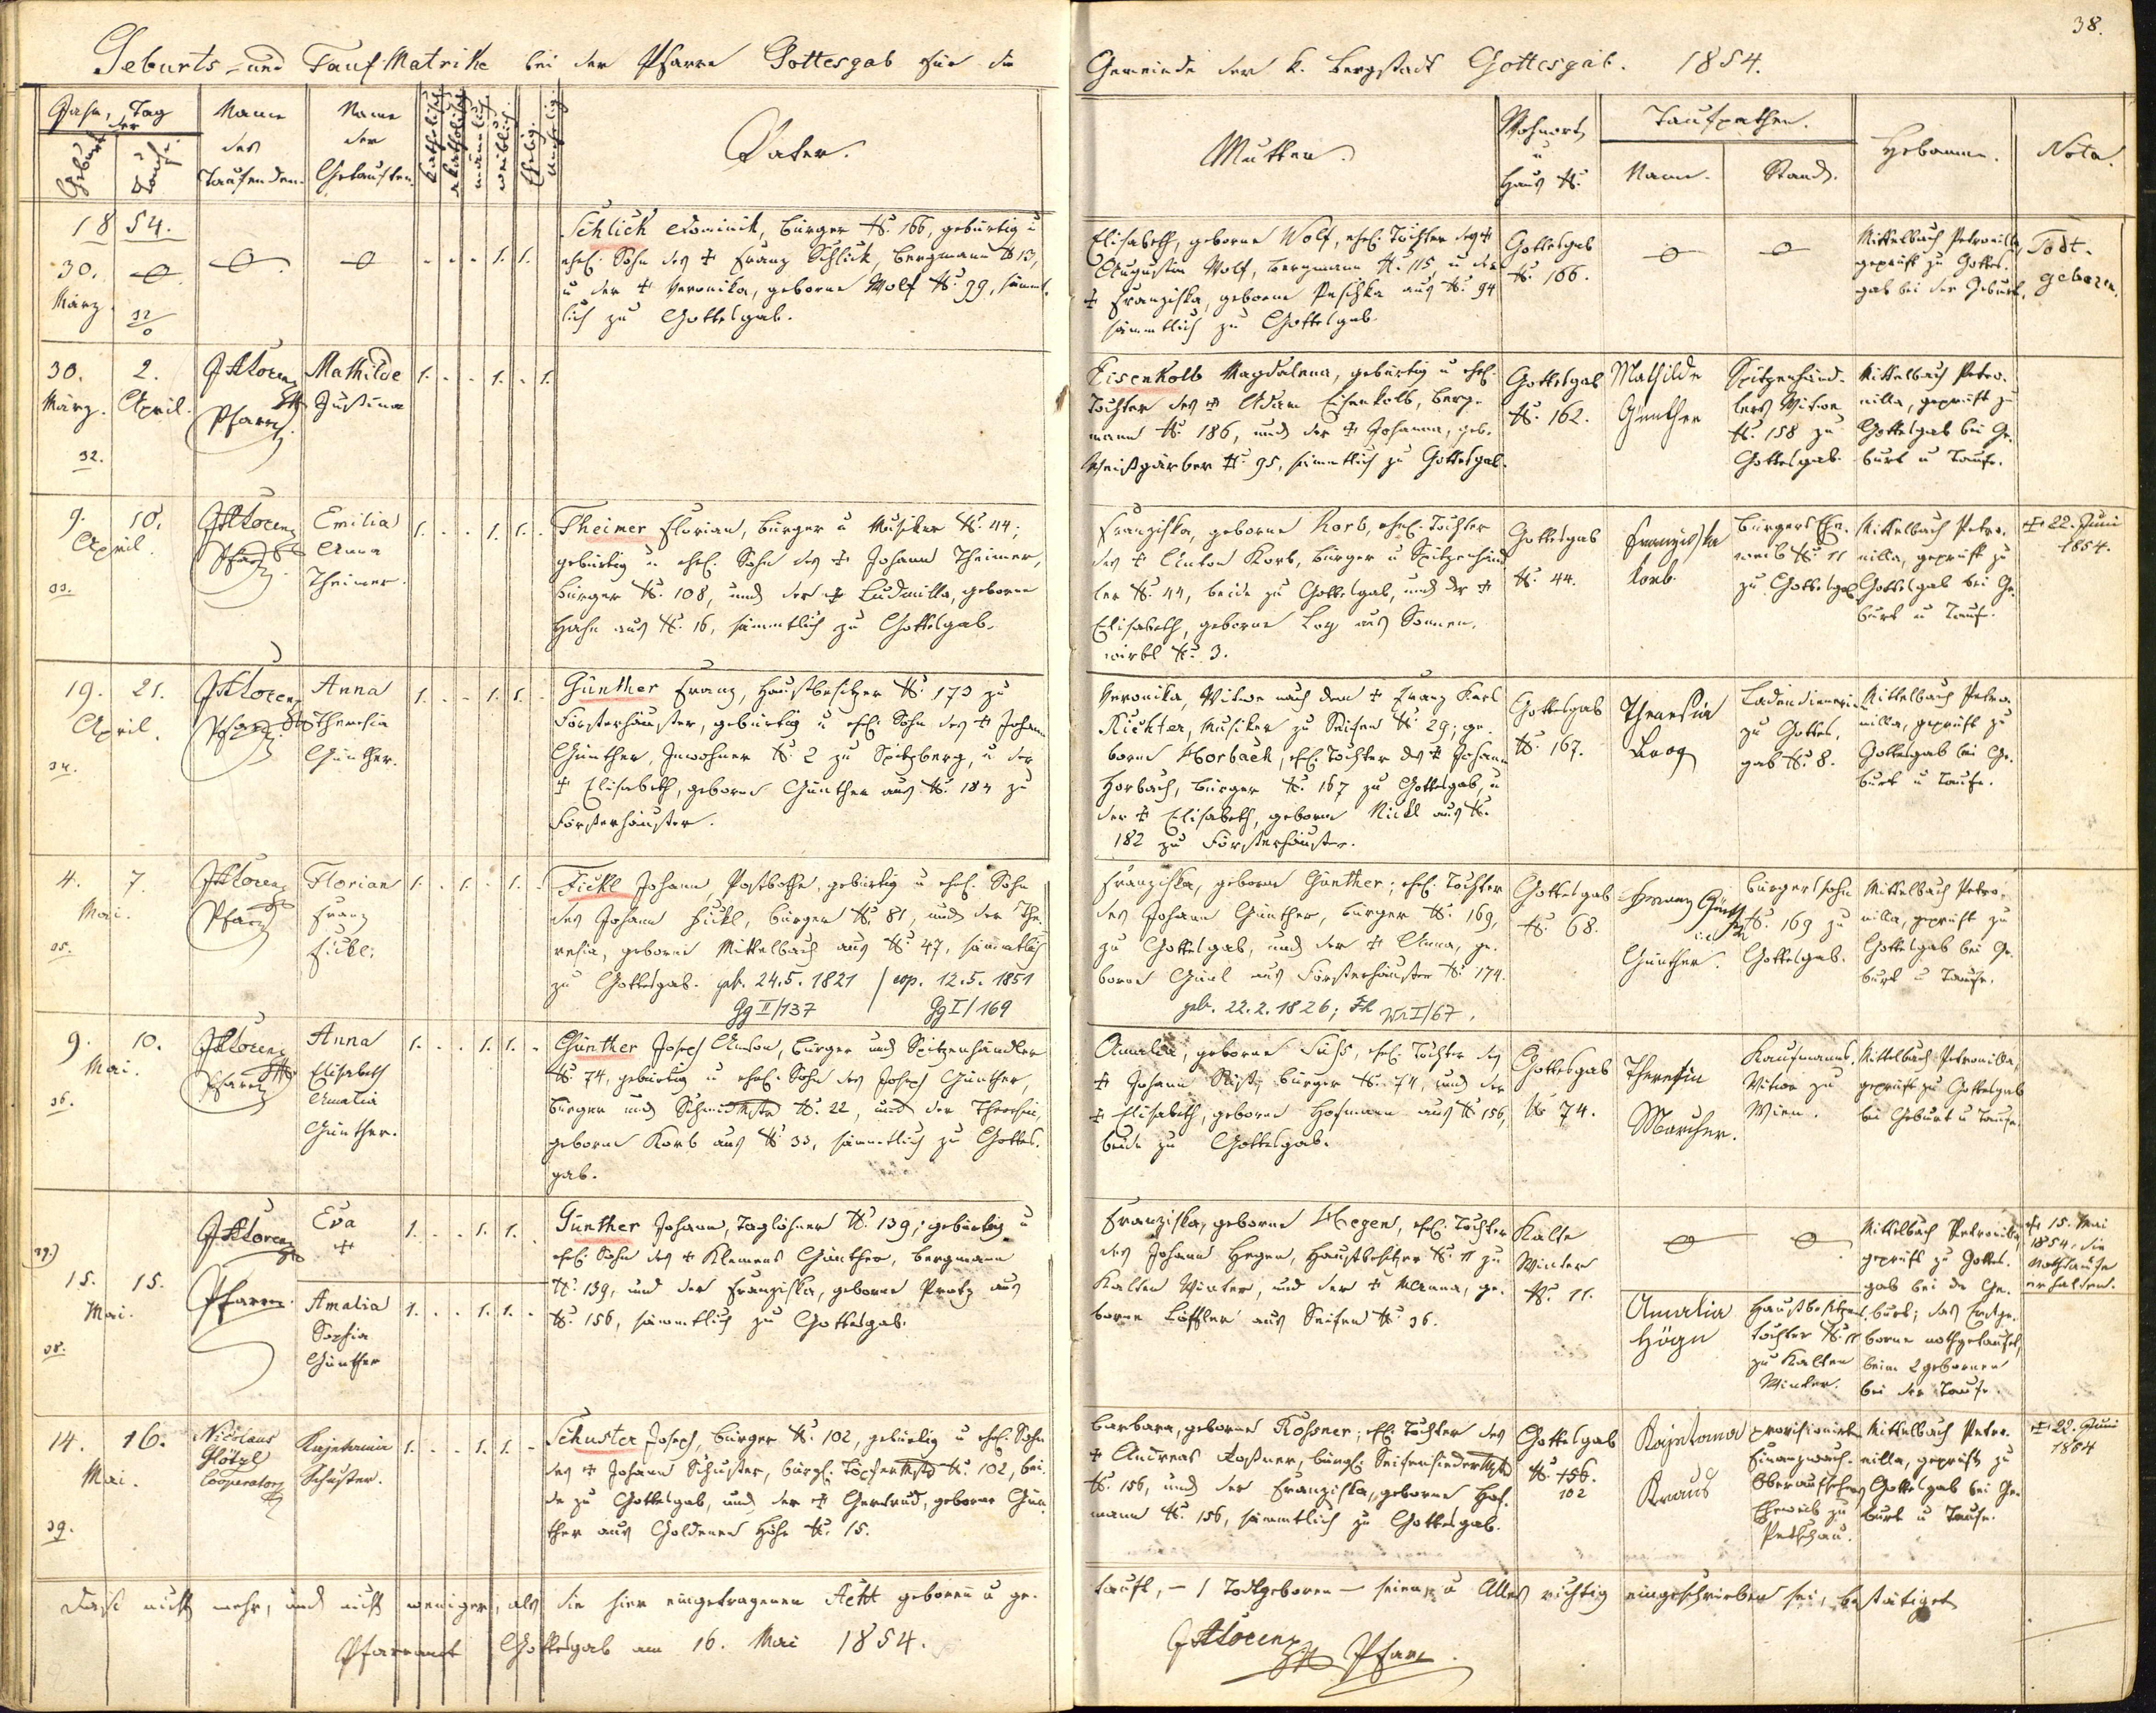 38.
Geburts- und Tauf-Matrike bei der Pfarre Gottesgab für die
Gemeinde der k. Bergstadt Gottesgab. 1854.
Jahr, Tag
der
Geburt
Taufe.
Name
des
Taufenden.
Name
der
Getauften.
katholisch
akatholisch
männlich.
weiblich.
Ehelig.
unehelig.
Vater.
Mutter.
Wohnort
u
Haus №
Taufpathen.
Name.
Stand.
Hebamme.
Nota.
1854.
30.
März.
1. 1.
Schlick Dominik, Bürger №. 166, gebürtig u
ehel. Sohn des † Franz Schlick, Bergmann № 13,
u der † Veronika, geborne Wolf №. 99, sämmt-
lich zu Gottesgab.
Elisabeth, geborne Wolf, ehel. Tochter des †
Augustin Wolf, Bergmann №. 115, u der
† Franziska, geborne Peschka aus №. 94
sämmtlich zu Gottesgab.
Gottesgab
№. 166.
Mittelbach Petronilla,
geprüft zu Gottes-
gab bei der Geburt.
Todt-
geboren.
30.
März.
2.
April.
32.
J A Lorenz
Pfarrer.
Mathilde
Justina
1. 1. 1.
Eisenkolb Magdalena, gebürtig u ehel.
Tochter des † Adam Eisenkolb, Berg-
mann №. 186, und der † Johanna, geb.
Weißgärber №. 95, sämmtlich zu Gottesgab.
Gottesgab
№. 162.
Mathilde
Günther
Spitzenhänd-
lers Witwe
№. 158 zu
Gottesgab.
Mittelbach Petro-
nilla, geprüft zu
Gottesgab bei Ge-
burt u Taufe.
9. 10.
April.
33.
J A Lorenz
Pfarrer.
Emilia
Anna
Theimer.
1. 1. 1.
Theimer Florian, Bürger u Musiker №. 44;
gebürtig u ehel. Sohn des † Johann Theimer,
Bürger №. 108, und der † Ludmilla, geborne
Hahn aus №. 16, sämmtlich zu Gottesgab.
Franziska, geborne Korb, ehel. Tochter
des † Anton Korb, Bürger u Spitzenhänd-
ler №. 44, beide zu Gottesgab, und der †
Elisabeth, geborne Loy aus Sonnen-
wirbl №. 3.
Gottesgab
№. 44.
Franziska
Korb.
Bürgers Ehe-
weib №. 11
zu Gottesgab
Mittelbach Petro-
nilla, geprüft zu
Gottesgab bei Ge-
burt u Taufe.
† 22. Juni
1854.
19. 21.
April.
34.
J A Lorenz
Pfarrer.
Anna
Theresia
Günther.
1. 1. 1.
Günther Franz, Hausbesitzer №. 173 zu
Försterhäuser, gebürtig u ehel. Sohn des † Johann
Günther, Inwohner №. 2 zu Spitzberg, u der
† Elisabeth, geborne Günther aus №. 184 zu
Försterhäuser.
Veronika, Witwe nach dem † Franz Karl
Richter, Musiker zu Seifen №. 29; ge-
borne Horbach, ehel. Tochter des † Johann
Horbach, Bürger №. 167 zu Gottesgab, u
der † Elisabeth, geborne Nickl aus №.
182 zu Försterhäuser.
Gottesgab
№. 167.
Theresia
Ladendienerin
zu Gottes-
gab №. 8.
Mittelbach Petro-
nilla, geprüft zu
Gottesgab bei Ge-
burt u Taufe.
4. 7.
Mai.
35.
J A Lorenz
Pfarrer
Florian
Franz
Fickl.
1. 1. 1.
Fickl Johann, Postbothe, gebürtig u ehel. Sohn
des Johann Fickl, Bürger №. 81, und der The-
resia, geborne Mittelbach aus №. 47, sämmtlich
zu Gottesgab. geb. 24.5.1821 / cop. 12.5.1851
Gg II/137 Gg I/169
Franziska, geborne Günther; ehel. Tochter
des Johann Günther, Bürger №. 169,
zu Gottesgab, und der † Anna, ge-
borne Güul aus Försterhäuser №. 174.
geb. 22.2.1826; Fh Wi I/67.
Gottesgab
№. 68.
Franz
Günther.
Bürgerssohn
№. 169 zu
Gottesgab.
Mittelbach Petro-
nilla, geprüft zu
Gottesgab bei Ge-
burt u Taufe.
9. 10.
Mai.
36.
J A Lorenz
Pfarrer
Anna
Elisabeth
Amalia
Günther.
1. 1. 1.
Günther Joseph Anton, Bürger und Spitzenhändler
№. 74, gebürtig u ehel. Sohn des Joseph Günther,
Bürger und Schmidmstr №. 22, und der Theresia,
geborne Korb aus №. 33, sämmtlich zu Gottes-
gab.
Amalia, geborne Süß, ehel. Tochter des
† Johann Süß, Bürger №. 74, und der
† Elisabeth, geborne Hofmann aus № 156,
beide zu Gottesgab.
Gottesgab
№ 74.
Theresia
Marcher.
Kaufmanns-
Witwe zu
Wien.
Mittelbach Petronilla,
geprüft zu Gottesgab
bei Geburt u Taufe.
37.)
15. 15.
Mai.
38.
J A Lorenz
Pfarrer.
Eva
†
1. 1. 1.
Amalia
Sophia
Günther
1. 1. 1.
Günther Johann, Taglöhner №. 139; gebürtig u
ehel. Sohn des † Klemens Günther, Bergmann
№. 139, und der Franziska, geborne Protz aus
№. 156, sämmtlich zu Gottesgab.
Franziska, geborne Hegen, ehel. Tochter
des Johann Hegen, Hausbesitzer №. 11 zu
Kalten Winter, und der † Manna, ge-
borne Löffler aus Seifen №. 36.
Kalte
Winter
№. 11.
Amalia
Högn
Hausbesitzers-
tochter №. 11
zu Kalten
Winter.
Mittelbach Petronilla,
geprüft zu Gottes-
gab bei der Ge-
burt; das Erstge-
borne nothgetauft,
beim 2 gebornen
bei der Taufe.
† 15. Mai
1854, die
Nothtaufe
erhalten.
14. 16.
Mai.
39.
Nicolaus
Glötzl
Cooperator
Kajetania
Schuster.
1. 1. 1.
Schuster Joseph, Bürger №. 102, gebürtig u ehel. Sohn
des † Johann Schuster, bürgl. Töpfermstr №. 102, bei-
de zu Gottesgab, und der † Gertrud, geborne Gün-
ther aus Goldenen Höhe №. 15.
Barbara, geborne Roßner; ehel. Tochter des
† Andreas Roßner, bürgl. Seifensiedermstr
№. 156, und der Franziska, geborne Hof-
mann №. 156, sämmtlich zu Gottesgab.
Gottesgab
№. 156.
102
Kajetana
Kraus
provisionirte
Finanzwach-
Oberaufsehers
Eheweib zu
Petschau.
Mittelbach Petro-
nilla, geprüft zu
Gottesgab bei Ge-
burt u Taufe.
† 22. Juni
1854
Daß nicht mehr, und nicht weniger, als die hier eingetragenen Acht geboren u ge-
tauft, – 1 Todtgeboren – seien, u Alles richtig eingeschrieben sei, bestätiget
Pfarramt Gottesgab am 16. Mai 1854.
J A Lorenz Pfarr.